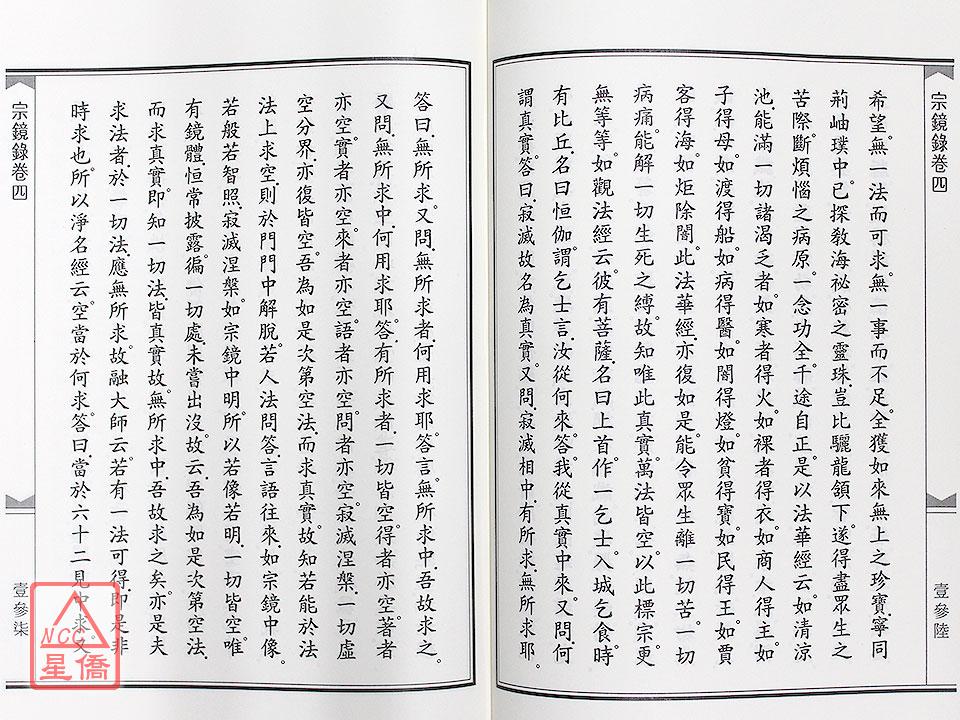 宗鏡錄卷四
壹參陸
希望。無一法而可求。無一事而不足。全獲如來無上之珍寶。寧同
荊岫璞中。已探教海祕密之靈珠。豈比驪龍頷下。遂得盡眾生之
苦際。斷煩惱之病原。一念功全。千途自正。是以法華經云。如清涼
池。能滿一切諸渴乏者。如寒者得火。如裸者得衣。如商人得主。如
子得母。如渡得船。如病得醫。如闇得燈。如貧得寶。如民得王。如賈
客得海。如炬除闇。此法華經。亦復如是。能令眾生離一切苦。一切
病痛。能解一切生死之縛。故知唯此真實。萬法皆空。以此標宗。更
無等等。如觀法經云。彼有菩薩。名曰上首。作一乞士。入城乞食。時
有比丘。名曰恒伽。謂乞士言。汝從何來。答。我從真實中來。又問。何
謂真實。答曰。寂滅故名為真實。又問。寂滅相中。有所求。無所求耶。
答曰。無所求。又問。無所求者。何用求耶。答言。無所求中。吾故求之。
又問。無所求中。何用求耶。答。有所求者。一切皆空。得者亦空。著者
亦空。實者亦空。來者亦空。語者亦空。問者亦空。寂滅涅槃。一切虛
空分界。亦復皆空。吾為如是次第空法。而求真實。故知若能於法
法上求空。則於門門中解脫。若人法問答。言語往來。如宗鏡中像。
若般若智照。寂滅涅槃。如宗鏡中明。所以若像若明。一切皆空。唯
有鏡體。恒常披露。徧一切處。未嘗出沒。故云。吾為如是次第空法。
而求真實。即知一切法皆真實故。無所求中。吾故求之矣。亦是夫
求法者。於一切法。應無所求。故融大師云。若有一法可得。即是非
時求也。所以淨名經云。空當於何求。答曰。當於六十二見中求。又
宗鏡錄卷四
壹參柒
NCC
星僑